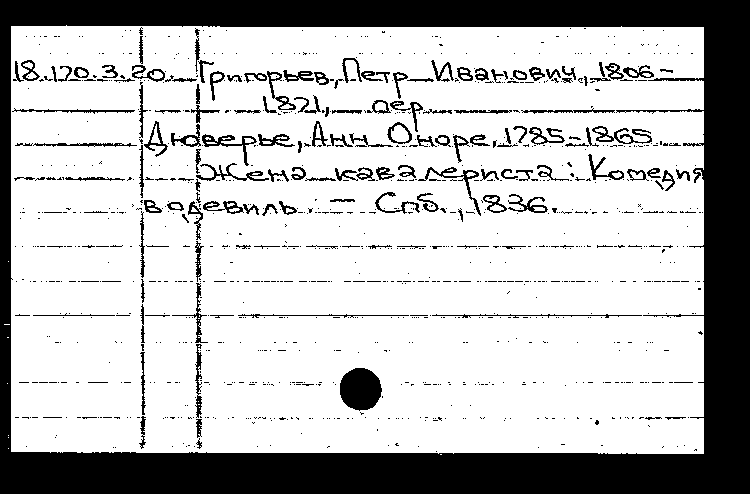 18.170.3.20. Григорьев, Петр Иванович, 1806-
1871, пер.
Дюверье, Анн Оноре, 1785-1865.
Жена кавалериста: Комедия
водевиль. - Спб., 1836.